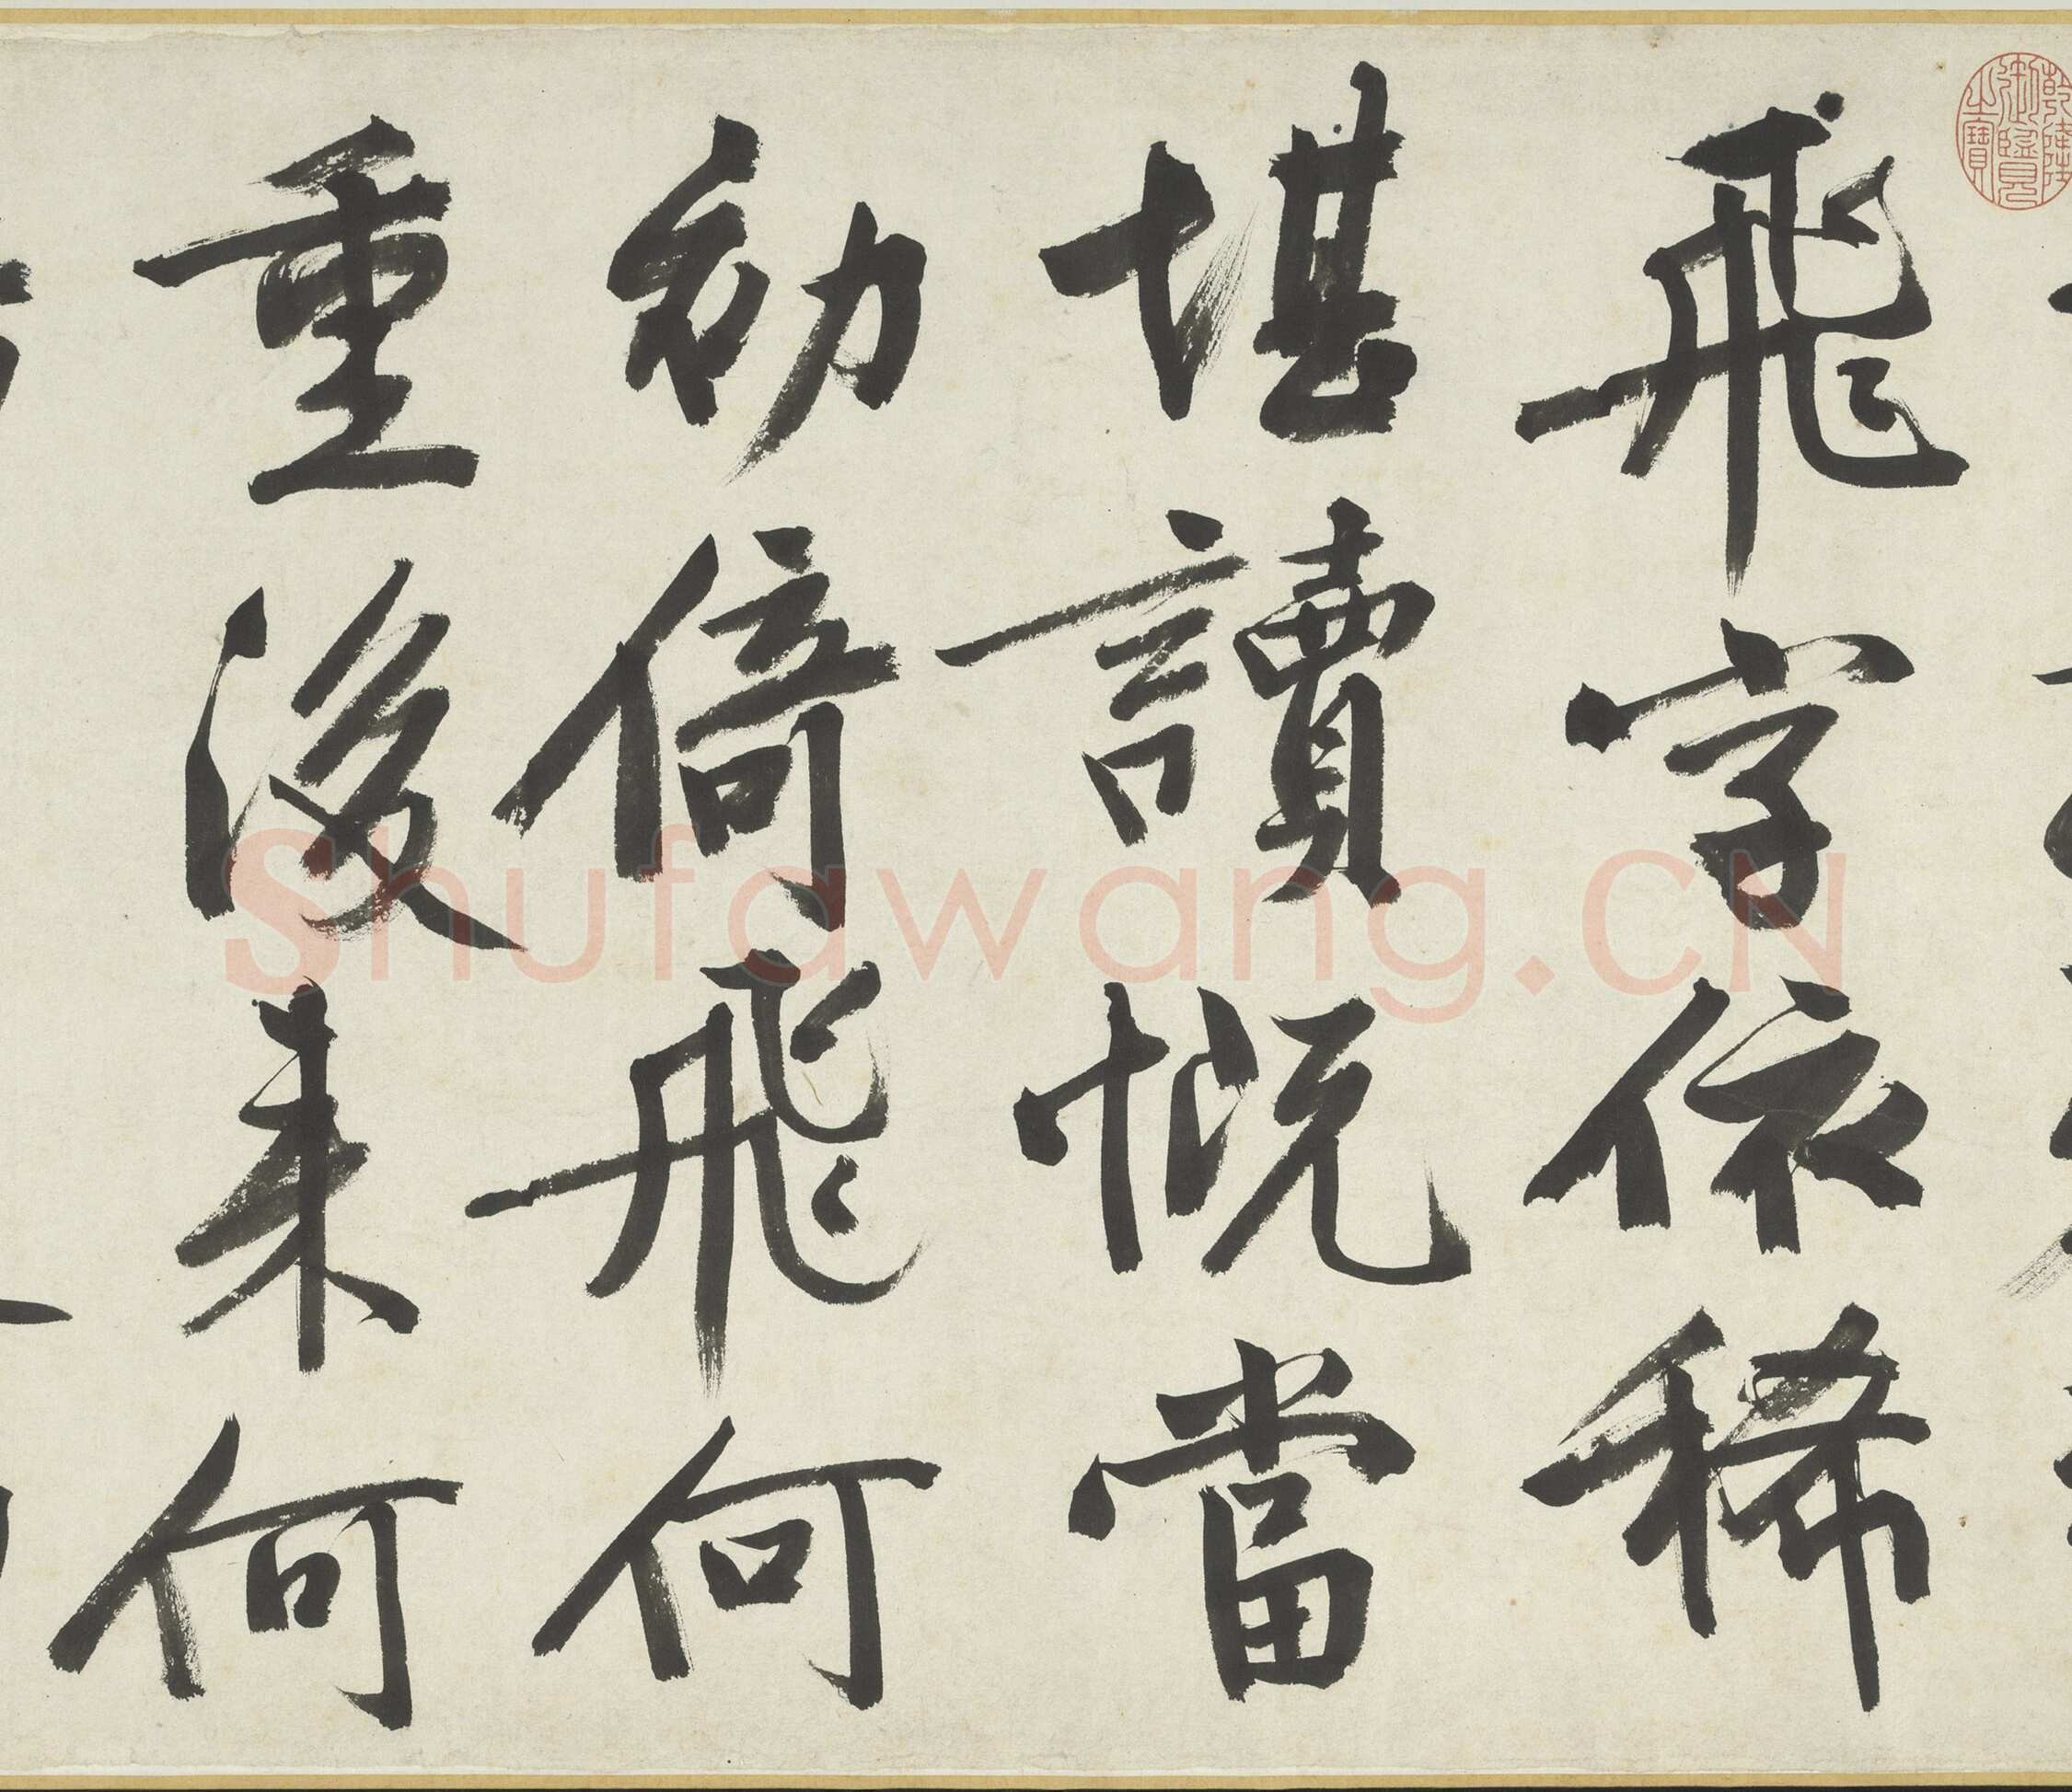 飛字依稀
堪讀慨當
初倚飛何
重後来何
乾隆御覽之寶
Shufawang.CN